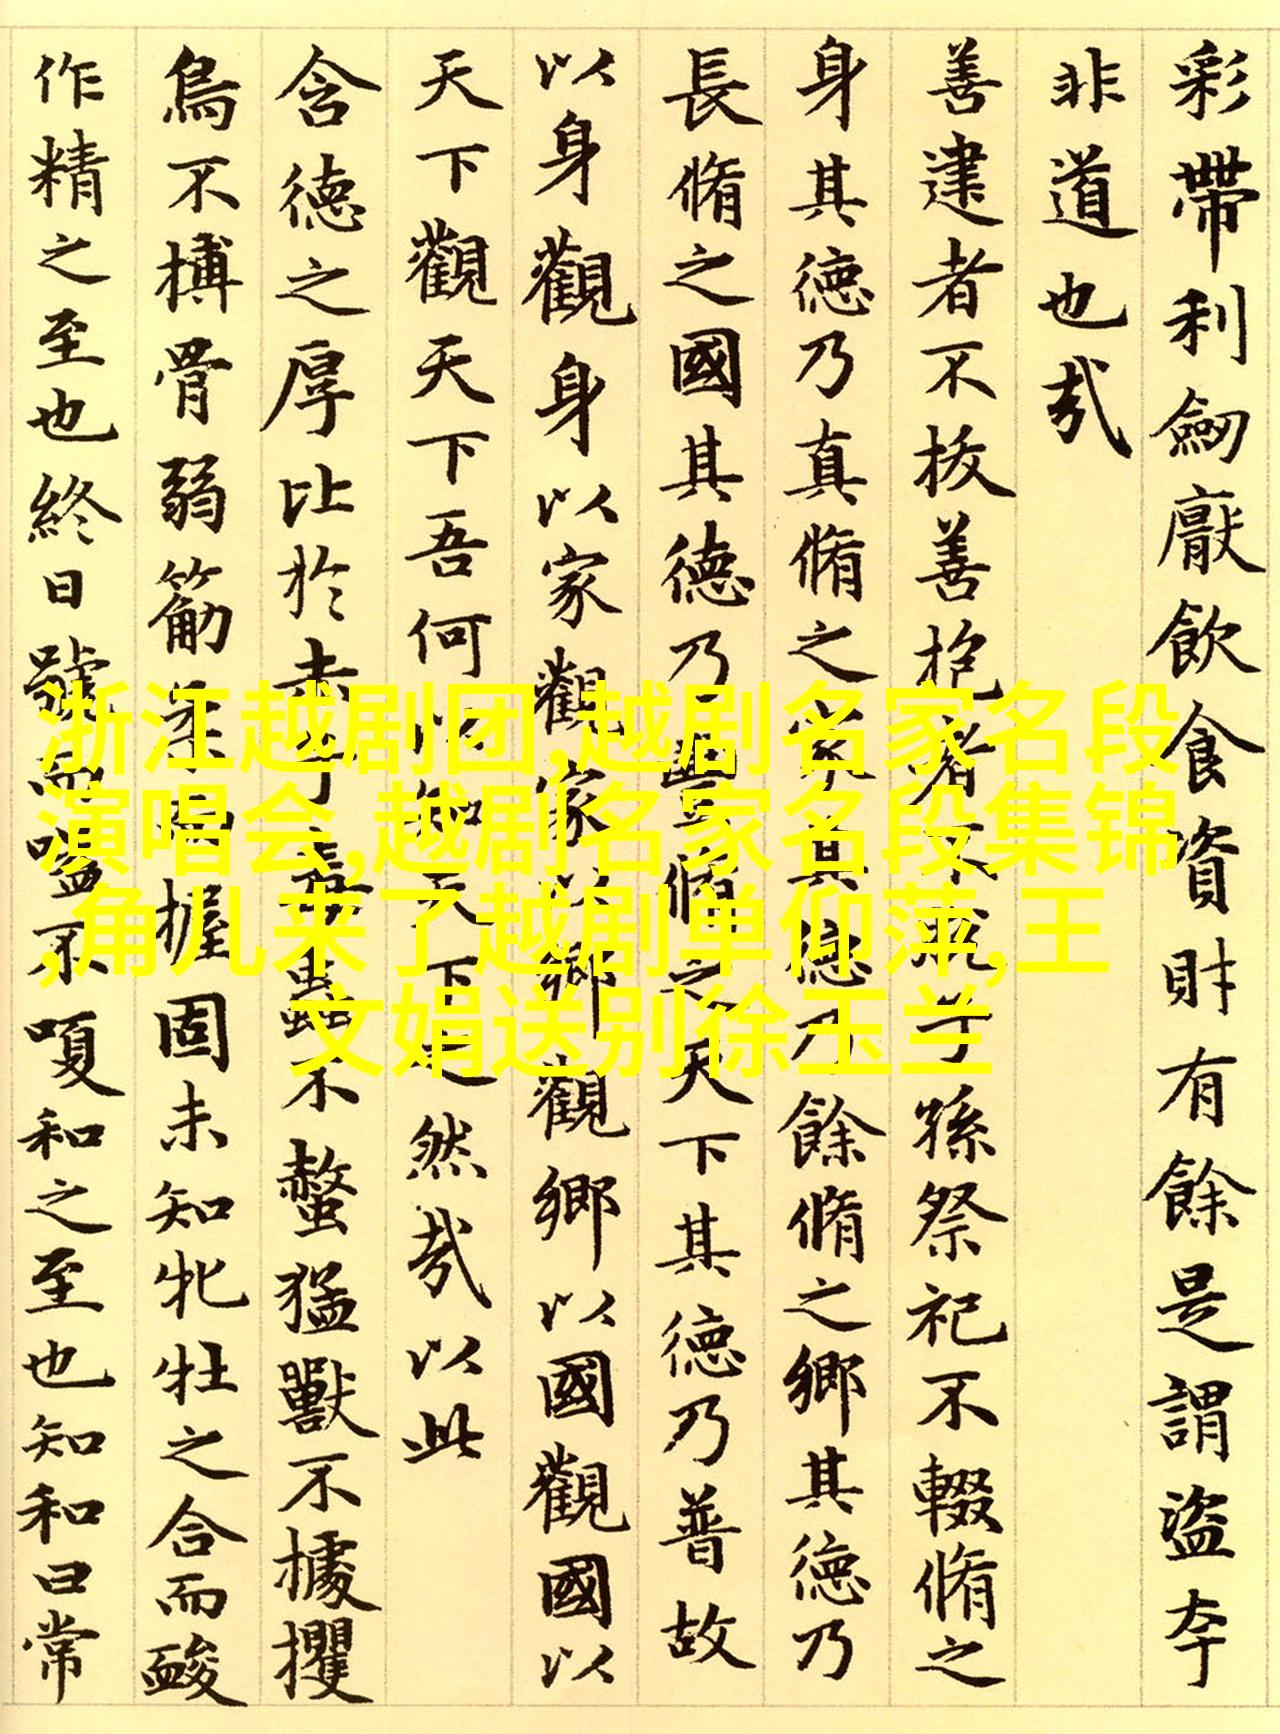 彩帶利劒厭飲食資財有餘是謂盜夸
非道也哉
善建者不拔善抱者不脫子孫祭祀不輟脩之
身其德乃真脩之家其德乃餘脩之鄉其德乃
長脩之國其德乃豐脩之天下其德乃普故
以身觀身以家觀家以鄉觀鄉以國觀國以
天下觀天下吾何以知天下之然哉以此
含德之厚比於赤子毒蟲不螫猛獸不據攫
鳥不搏骨弱筋柔而握固未知牝牡之合而䘒
作精之至也終日號而嗌不嗄和之至也知和曰常
浙江越剧团,越剧名家名段
演唱会,越剧名家名段集锦
,角儿来了越剧单仰萍,王
文娟送别徐玉兰